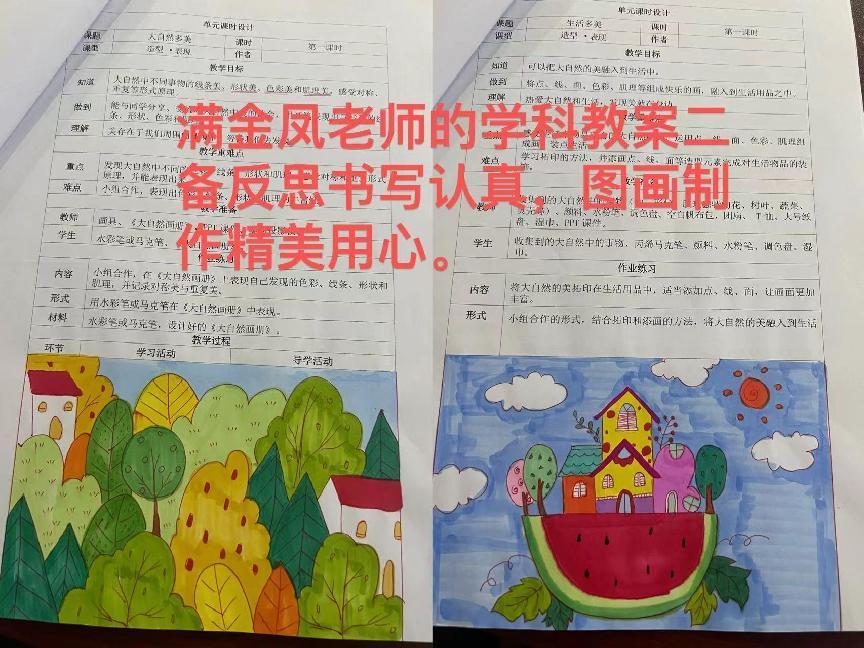 单元课时设计
课题 大自然多美 课时 第一课时
课型 造型·表现 作者
教学目标
知道 大自然中不同事物的线条美、形状美、色彩美和肌理美,感受对称、
重复等形式原理
做到 能与同学分享
条、形状、色彩
理解 美存在于我们周围
教学重难点
重点 发现大自然中不同的
难点 小组合作,表现出
教师 画具、《大自然画册》
学生 水彩笔或马克笔、
作业练习
内容 小组合作,在《大自然画册》上表现自己发现的色彩、线条、形状和
肌理,并记录对称美与重复美。
形式 用水彩笔或马克笔在《大自然画册》中表现。
材料 水彩笔或马克笔,设计好的《大自然画册》。
教学过程
环节 学习活动 导学活动
满金凤老师的学科教案二
备反思书写认真,图画制
作精美用心。
单元课时设计
课题 生活多美 课时 第一课时
课型 造型·表现 作者
教学目标
知道 可以把大自然的美融入到生活中。
做到 将点、线、面、色彩、肌理等组成快乐的画,融入到生活用品之中。
理解 热爱大自然和生活,发现美就在身边
点、线、面、色彩、肌理组
难点 学习拓印的方法,并添画点、线、面等造型元素完成对生活物品的装
教师
花、树叶、蔬果、
颜料、水粉笔、调色盘、空白帆布包、团扇、T恤、大号纸
盘、湿巾、PPT 课件。
学生 收集到的大自然中的事物、丙烯马克笔、颜料、水粉笔、调色盘、湿
巾。
作业练习
内容 将大自然的美拓印在生活用品中,适当添加点、线、面,让画面更加
丰富。
形式 小组合作的形式,结合拓印和添画的方法,将大自然的美融入到生活